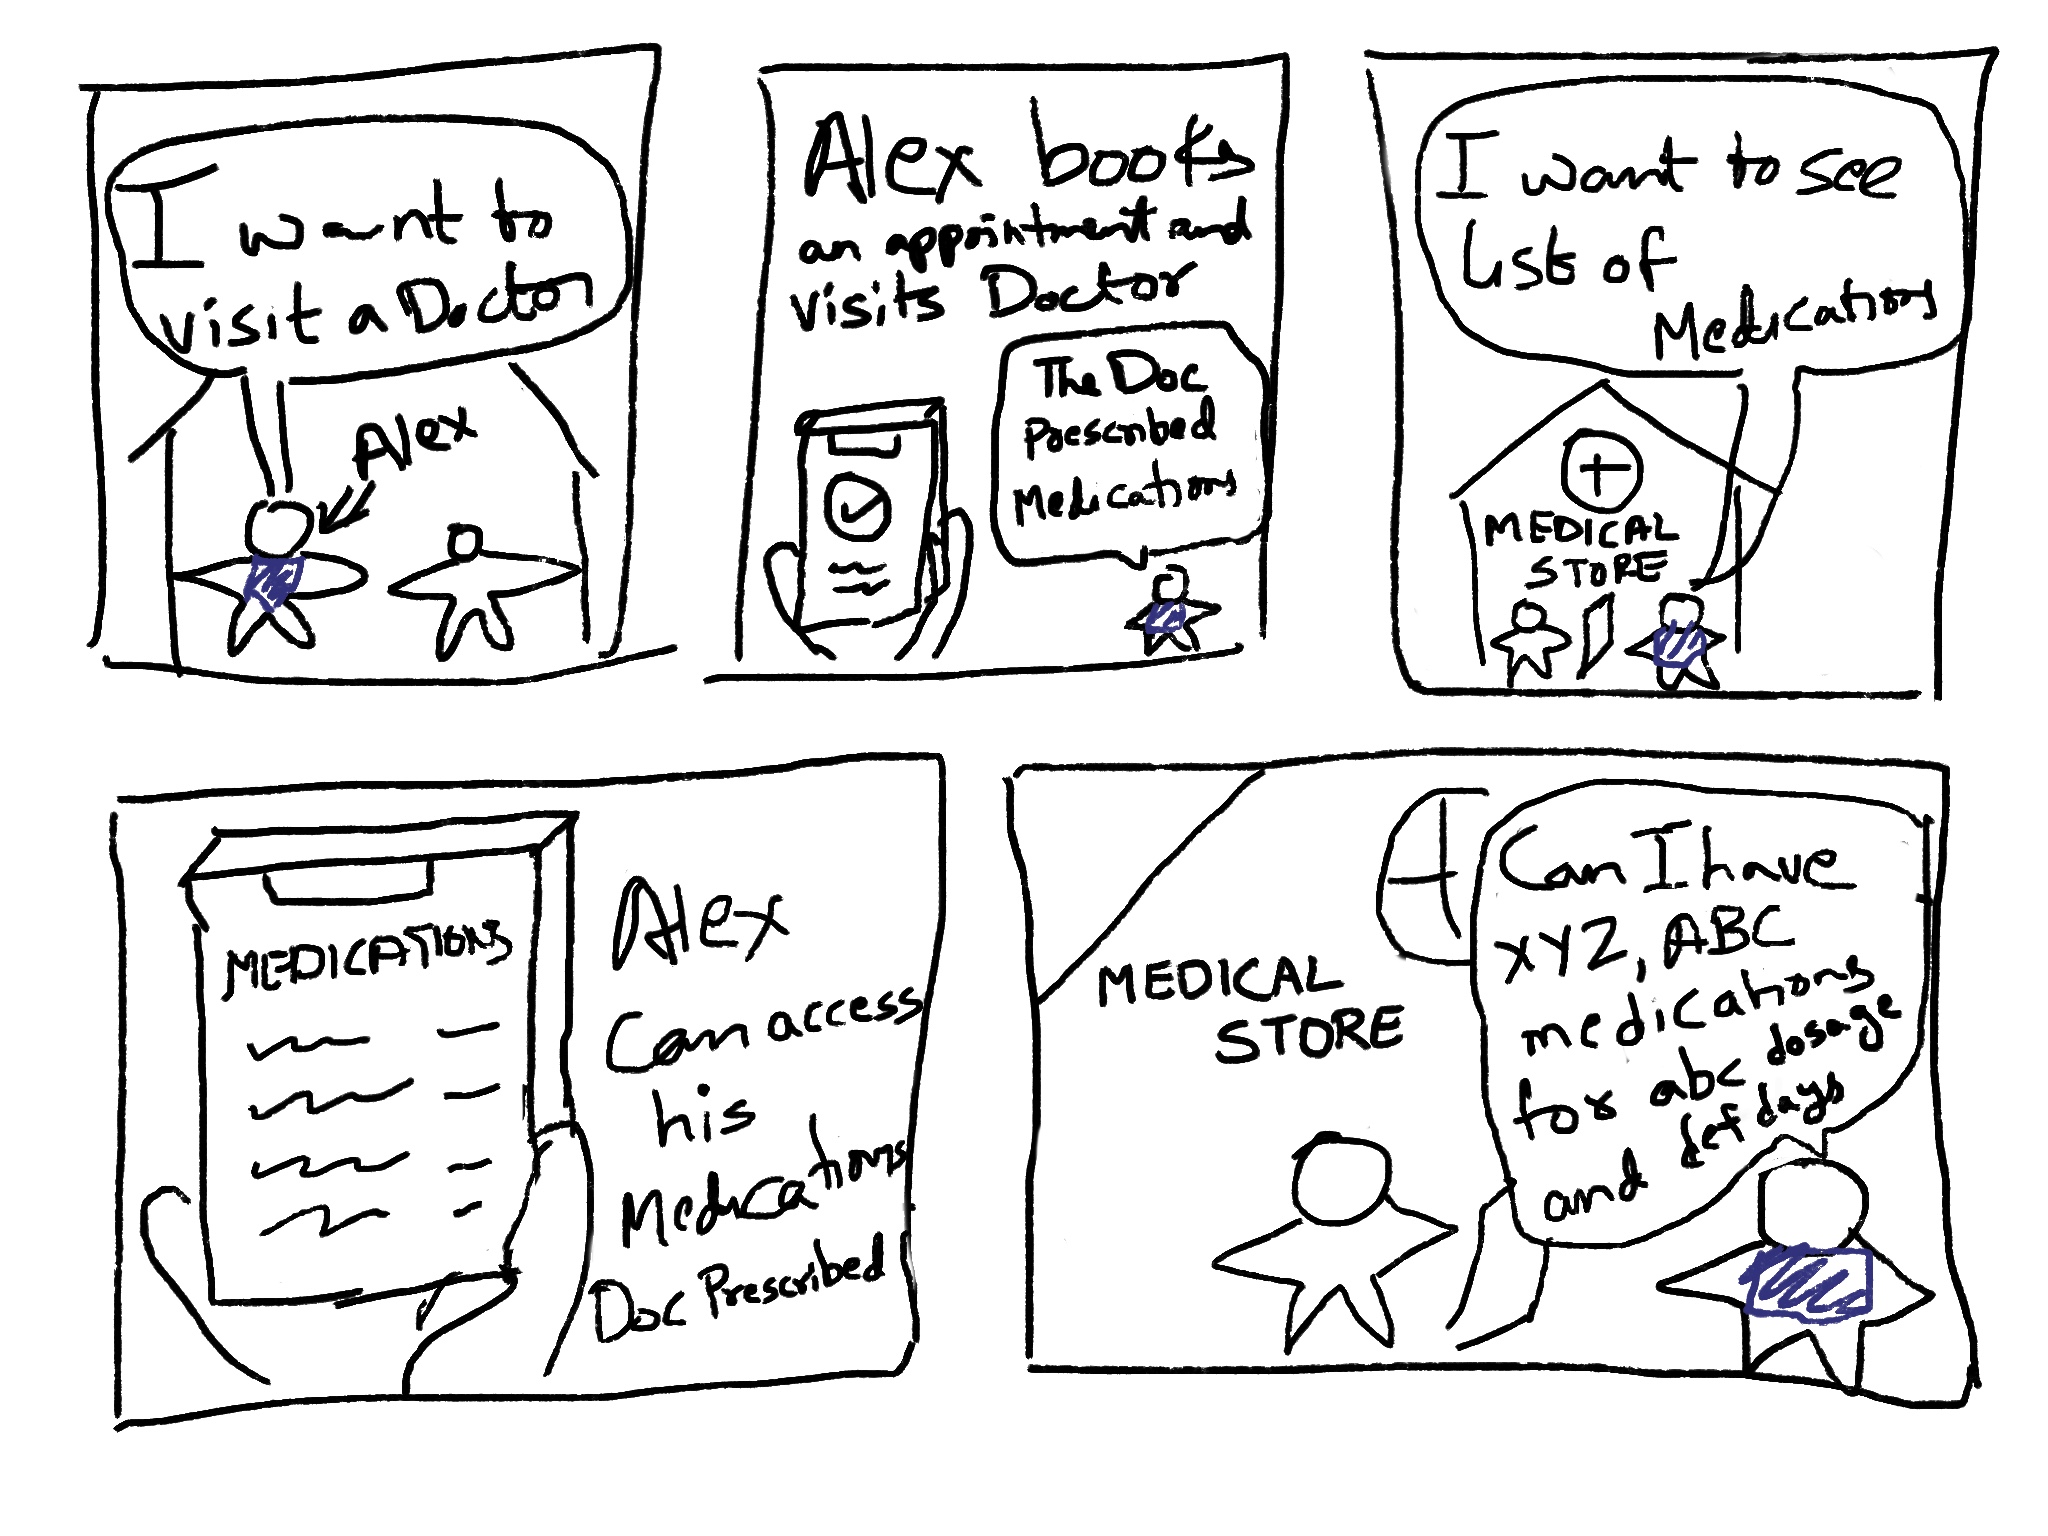 I want to
visit a Doctor
Alex
Alex books
an appointment and
visits Doctor
The Doc
Prescribed
Medications
I want to see
list of
Medications
MEDICAL
STORE
MEDICATIONS
Alex
Can access
his
Medications
Doc Prescribed
MEDICAL
STORE
Can I have
XYZ, ABC
medications
for abc dosage
and def days